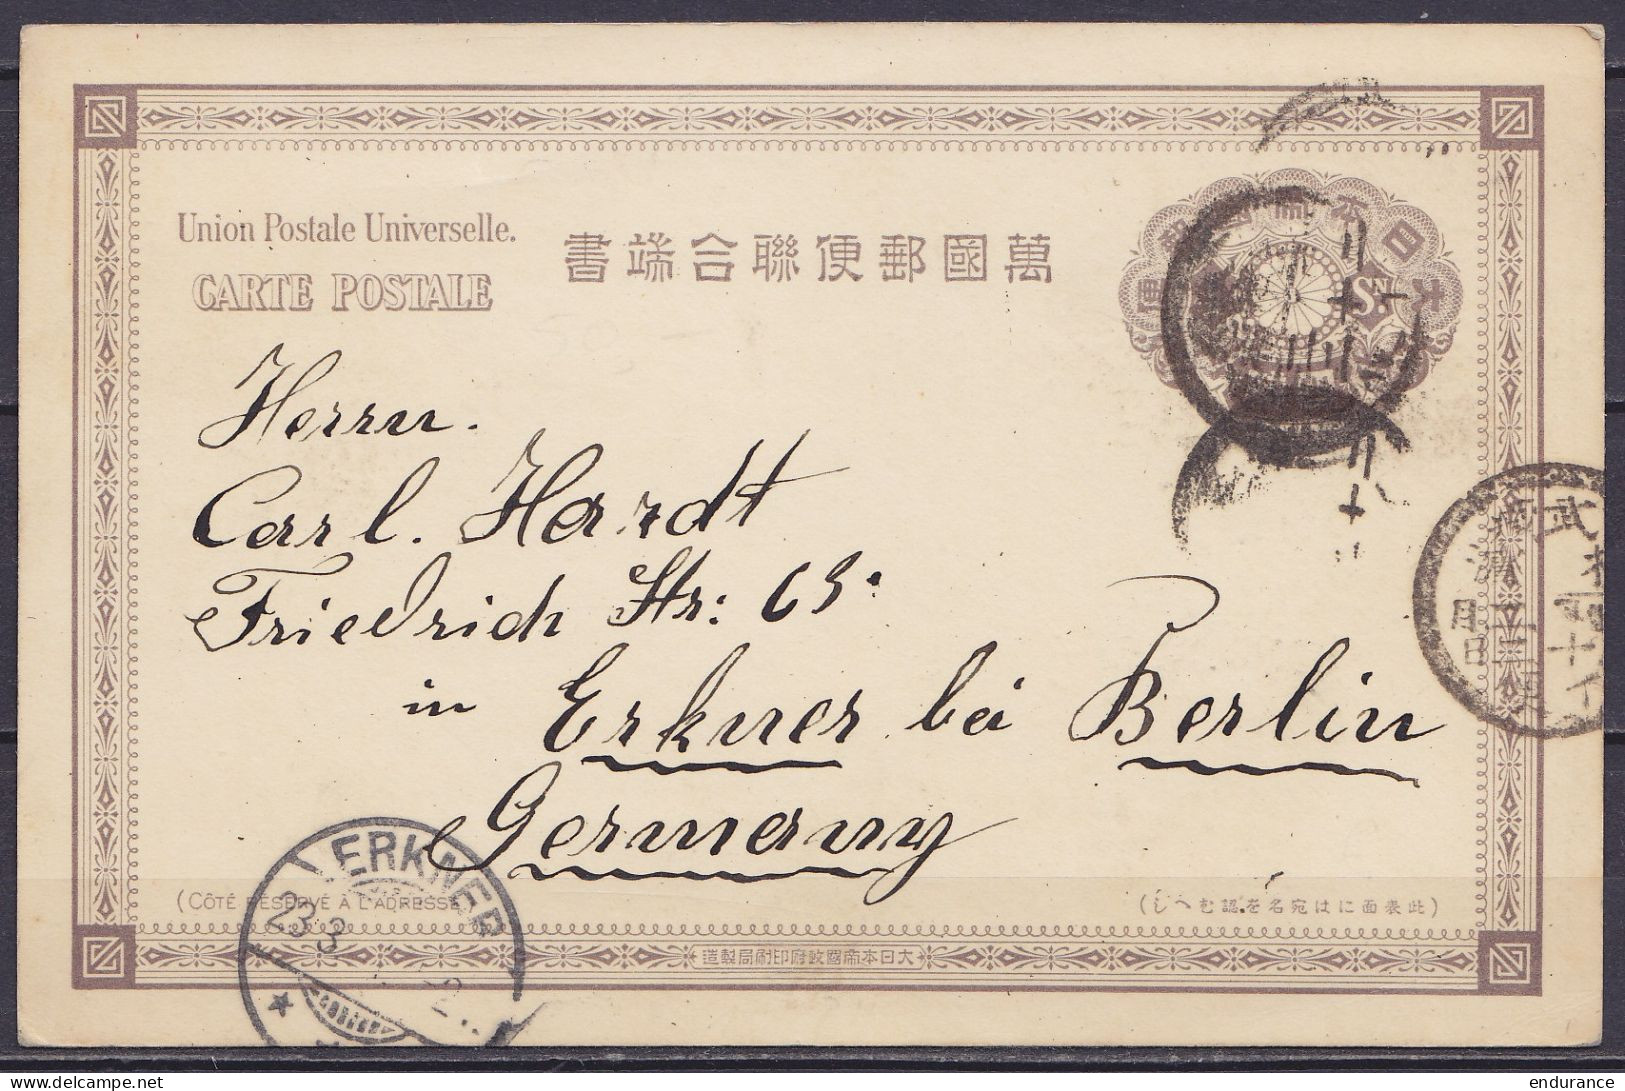 Union Postale Universelle.
CARTE POSTALE
萬國郵便聯合端書
日本
Sn.
Herrn.
Carl. Hardt
Friedrich Str: 63.
in Erkner bei Berlin
Germany
ERKNER
23 3
(CÔTÉ RÉSERVÉ À L'ADRESSE
(此表面には宛名を認むへし)
大日本帝國政府印刷局製造
delcampe.net
endurance